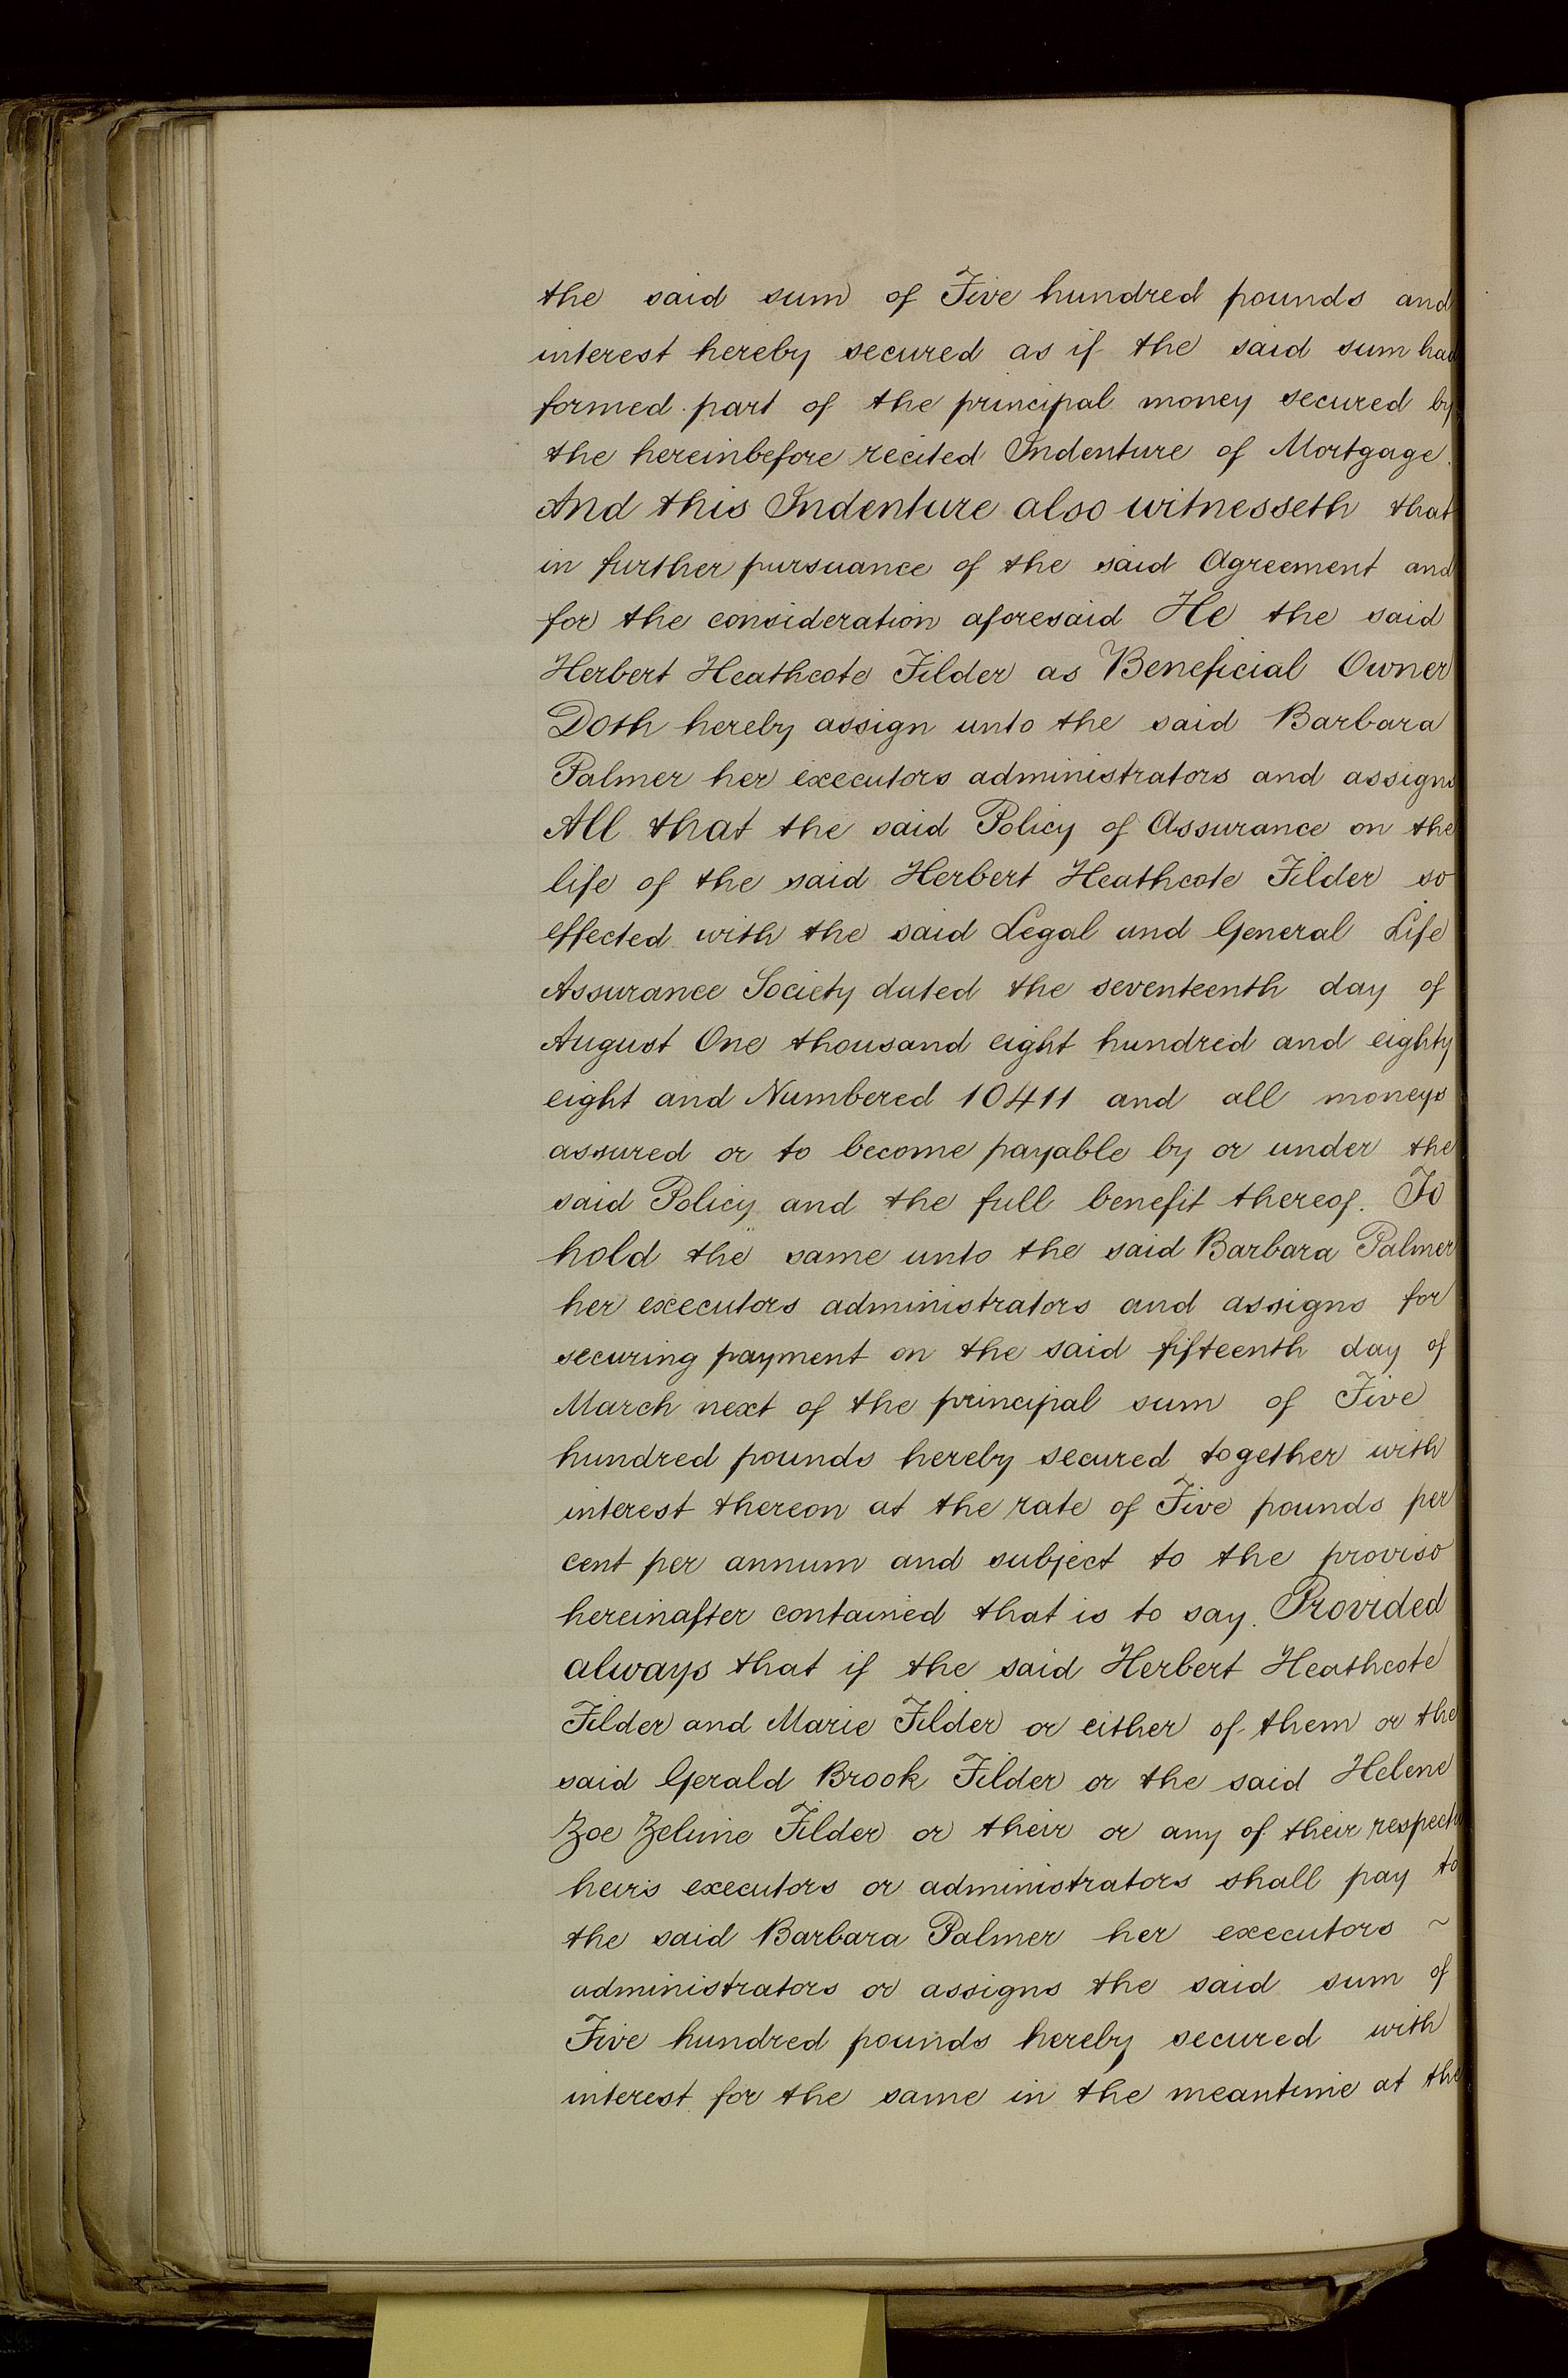 the said sum of Five hundred pounds and
interest hereby secured as if the said sum had
formed part of the principal money secured by
the hereinbefore recited Indenture of Mortgage.
And this Indenture also witnesseth that
in further pursuance of the said Agreement and
for the consideration aforesaid He the said
Herbert Heathcote Filder as Beneficial Owner
Doth hereby assign unto the said Barbara
Palmer her executors administrators and assigns
All that the said Policy of Assurance on the
life of the said Herbert Heathcote Filder so
effected with the said Legal and General Life
Assurance Society dated the seventeenth day of
August One thousand eight hundred and eighty
eight and Numbered 10411 and all moneys
assured or to become payable by or under the
said Policy and the full benefit thereof. To
hold the same unto the said Barbara Palmer
her executors administrators and assigns for
securing payment on the said fifteenth day of
March next of the principal sum of Five
hundred pounds hereby secured together with
interest thereon at the rate of Five pounds per
cent per annum and subject to the proviso
hereinafter contained that is to say. Provided
always that if the said Herbert Heathcote
Filder and Marie Filder or either of them or the
said Gerald Brook Filder or the said Helene
Zoe Zelime Filder or their or any of their
heirs executors or administrators shall pay to
the said Barbara Palmer her executors ~
administrators or assigns the said sum of
Five hundred pounds hereby secured with
interest for the same in the meantime at the